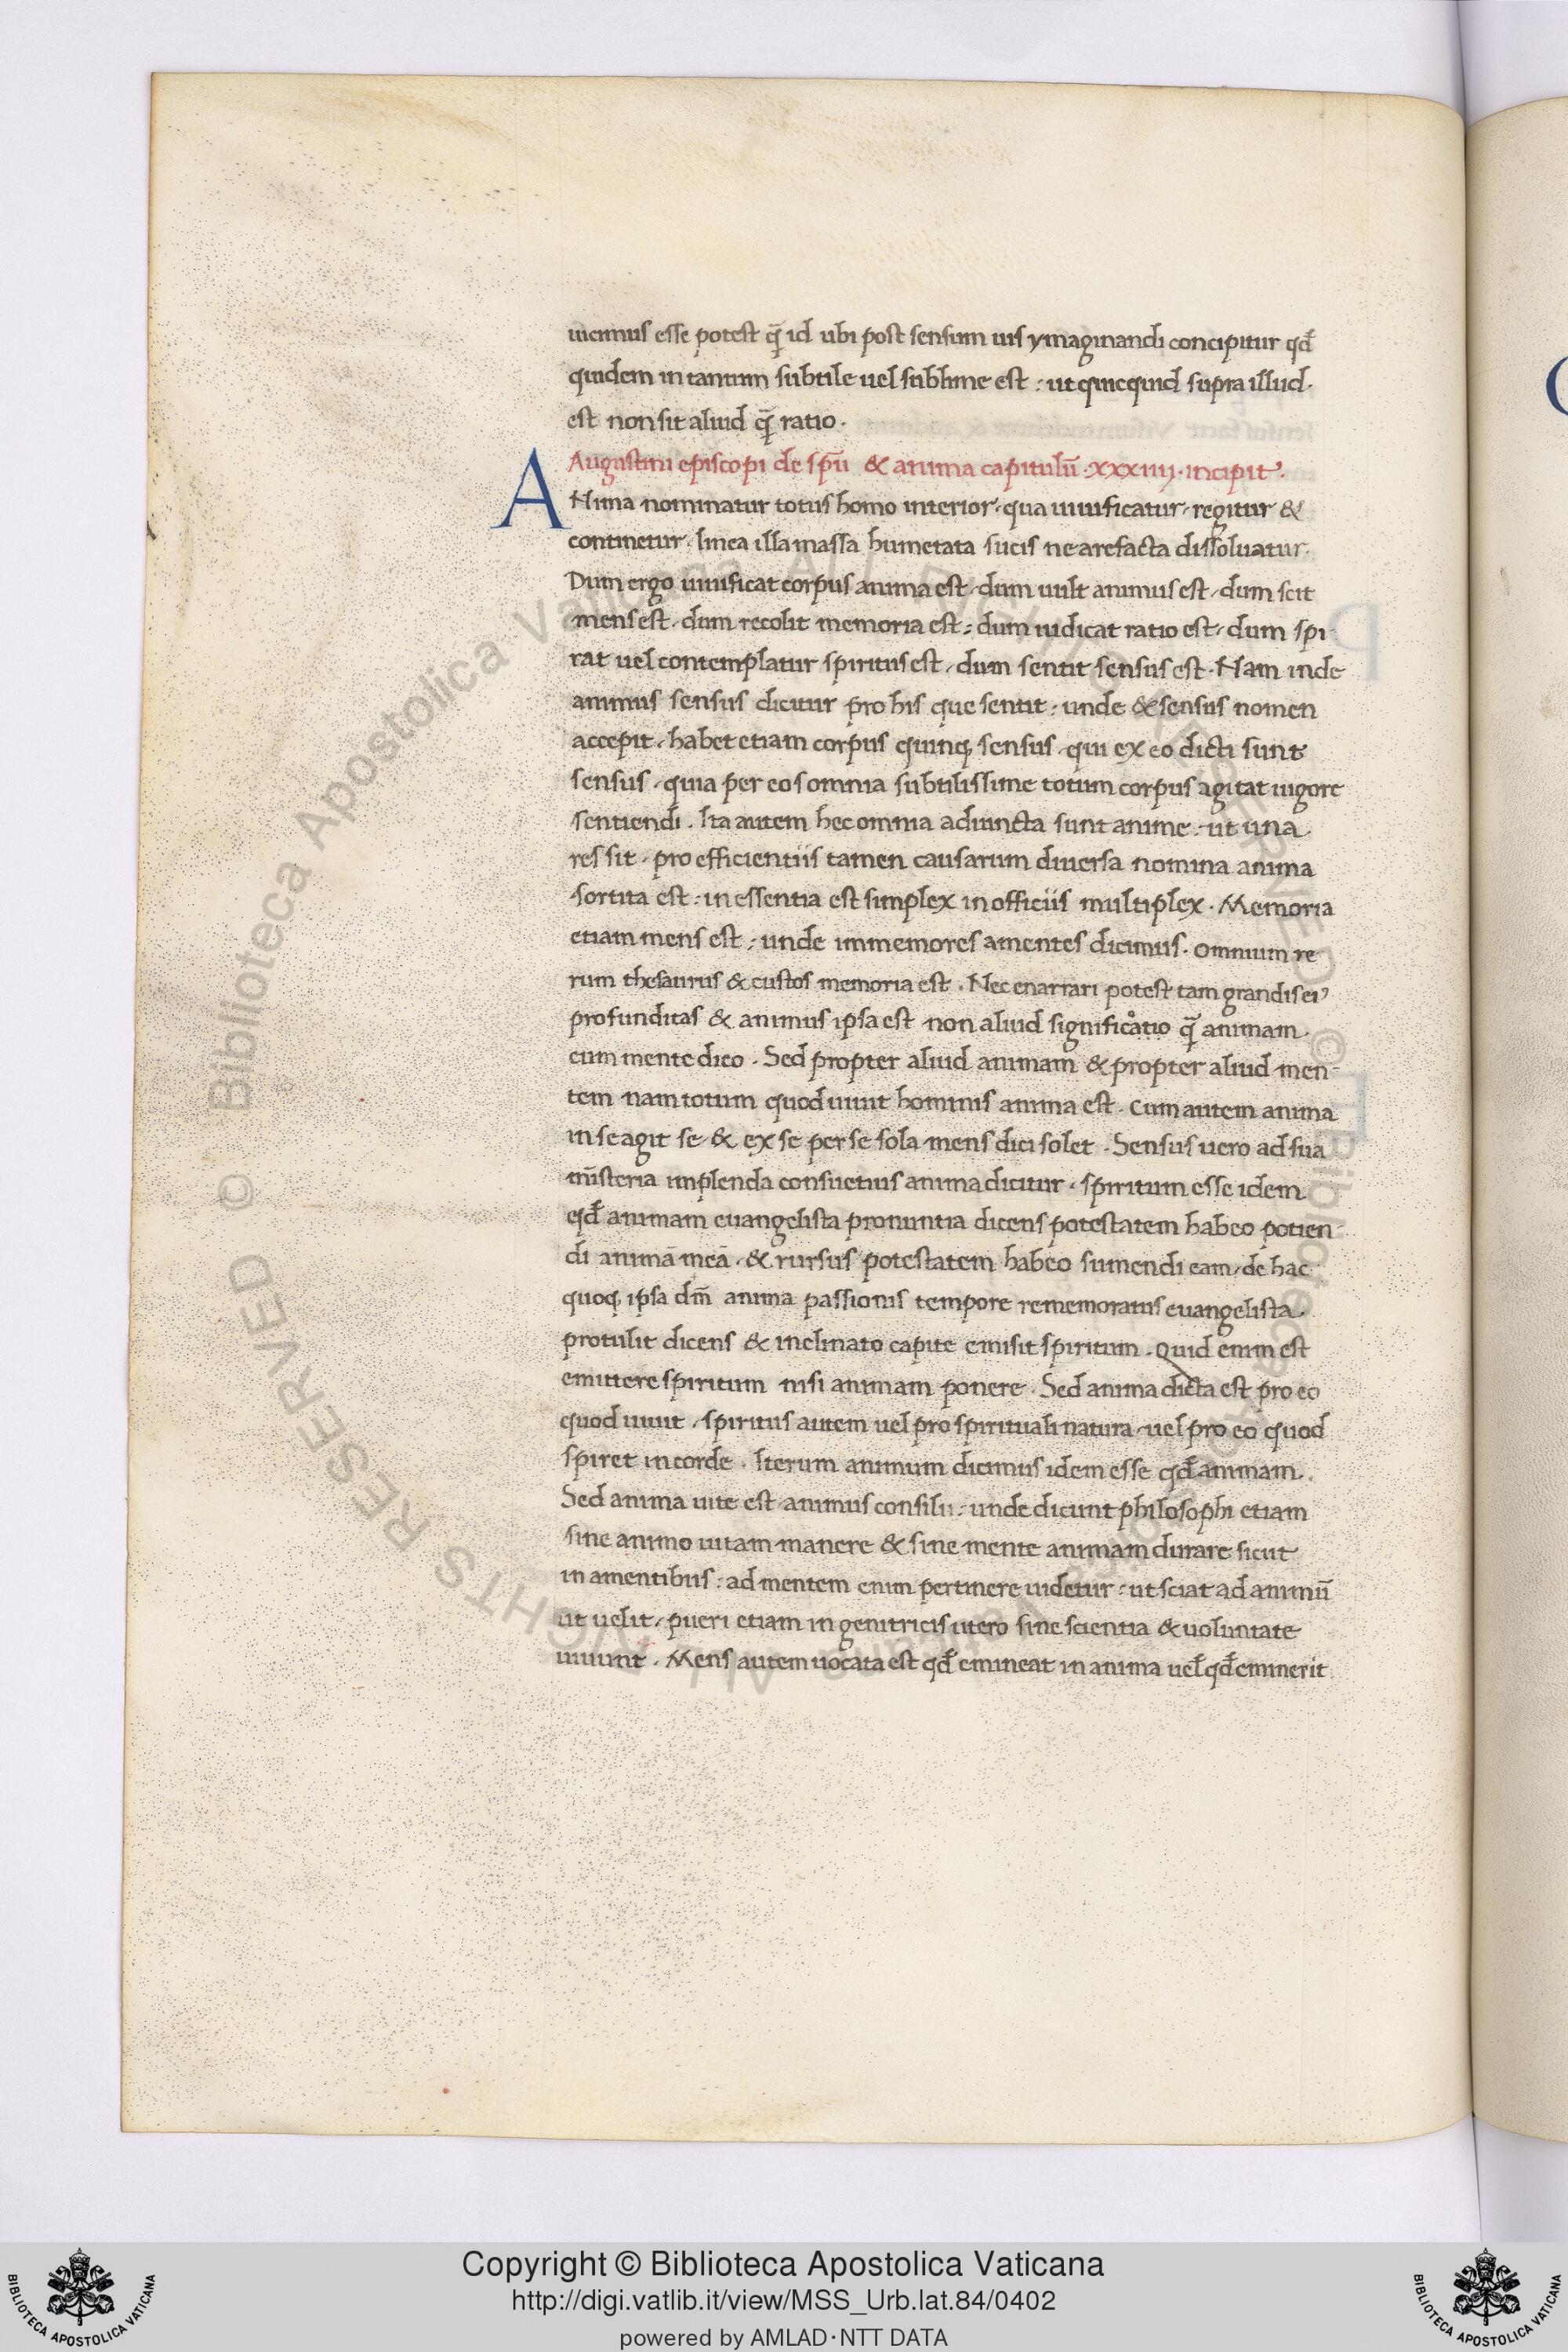 uicinius esse potest q̄ id ubi post sensum uis ymaginandi concipitur qđ
quidem in tantum subtile uel sublime est : ut quicquid supra illud·
est non sit aliud q̄ ratio·
Augustini episcopi de spū & anima capitulū·xxxiiij·incipit·
ANima nominatur totus homo interior·qua uiuificatur·regitur &
continetur·linea illa massa humetata sucis ne arefacta dissoluatur·
Dum ergo uiuificat corpus anima est·dum uult animus est·dum scit
mens est·dum recolit memoria est : dum iudicat ratio est·dum spi
rat uel contemplatur spiritus est·dum sentit sensus est·Nam inde
animus sensus dicitur pro his que sentit : unde & sensus nomen
accepit·habet etiam corpus quinq; sensus·qui ex eo dicti sunt
sensus·quia per eos omnia subtilissime totum corpus agitat uigore
sentiendi·Ita autem hec omnia adiuncta sunt anime : ut una
res sit·pro efficientiis tamen causarum diuersa nomina anima
sortita est : in essentia est simplex in officiis multiplex·Memoria
etiam mens est : unde immemores amentes dicimus·omnium re
rum thesaurus & custos memoria est·Nec enarrari potest tam grandis ei'
profunditas & animus ipsa est non aliud significatio q̄ animam·
cum mente dico·Sed propter aliud animam & propter aliud men-
tem nam totum quod uiuit hominis anima est·cum autem anima
in se agit se & ex se per se sola mens dici solet·Sensus uero ad sua
mīsteria implenda consuetius anima dicitur·spiritum esse idem
qđ animam euangelista pronuntia dicens potestatem habeo potien-
di animā meā·& rursus potestatem habeo sumendi eam·de hac
quoq; ipsa dm̄ anima passionis tempore rememoratus euangelista·
protulit dicens & inclinato capite emisit spiritum·Quid enim est
emittere spiritum nisi animam ponere·Sed anima dicta est pro eo
quod uiuit·spiritus autem uel pro spirituali natura·uel pro eo quod
spiret in corde·Iterum animum dicimus idem esse qđ animam·
Sed anima uite est·animus consilii : unde dicunt philosophi etiam
sine animo uitam manere & sine mente animam durare sicut
in amentibus : ad mentem enim pertinere uidetur : ut sciat ad animū
ut uelit·pueri etiam in genitricis utero sine scientia & uoluntate
uiuunt·Mens autem uocata est qđ emineat in anima uel qđ eminerit
© Biblioteca Apostolica Vaticana ALL RIGHTS RESERVED © Biblioteca Apostolica Vaticana ALL RIGHTS RESERVED
Copyright © Biblioteca Apostolica Vaticana
http://digi.vatlib.it/view/MSS_Urb.lat.84/0402
powered by AMLAD·NTT DATA
BIBLIOTECA APOSTOLICA VATICANA
BIBLIOTECA APOSTOLICA VATICANA